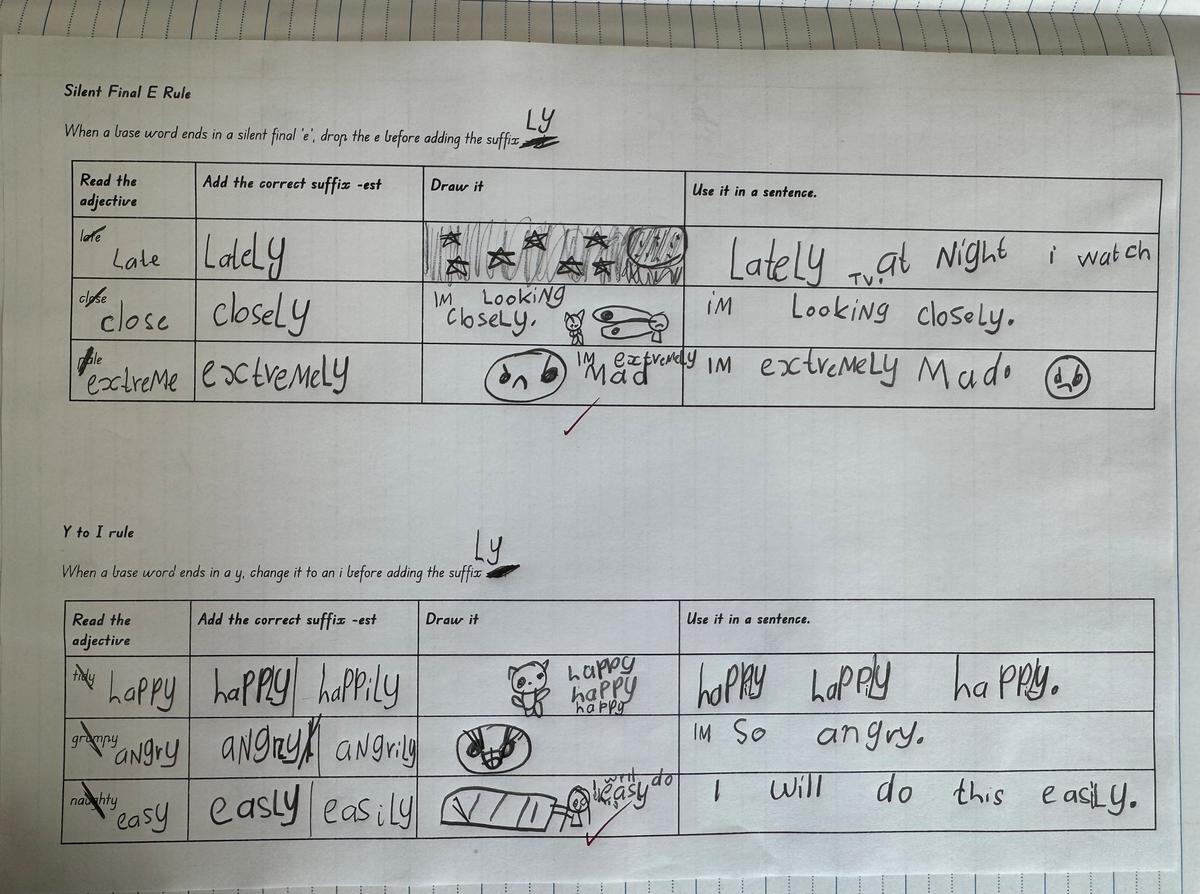 Silent Final E Rule
LY
When a base word ends in a silent final 'e', drop the e before adding the suffix
Read the adjective
Add the correct suffix -est
Draw it
Use it in a sentence.
late
Late
LateLy
LateLy at Night i watch
TV.
close
close
closeLy
IM Looking
CloseLy.
iM Looking closeLy.
pale
extreMe
extreMeLy
IM extreMely
Mad
IM extreMeLy Mad.
Y to I rule
Ly
When a base word ends in a y, change it to an i before adding the suffix
Read the adjective
Add the correct suffix -est
Draw it
Use it in a sentence.
tidy
happy
happLy
happiLy
happy
happy
happy
happLy happLy happLy.
grumpy
angry
angrily
IM So angry.
naughty
easy
easLy
easiLy
will do
easy
I will do this easiLy.